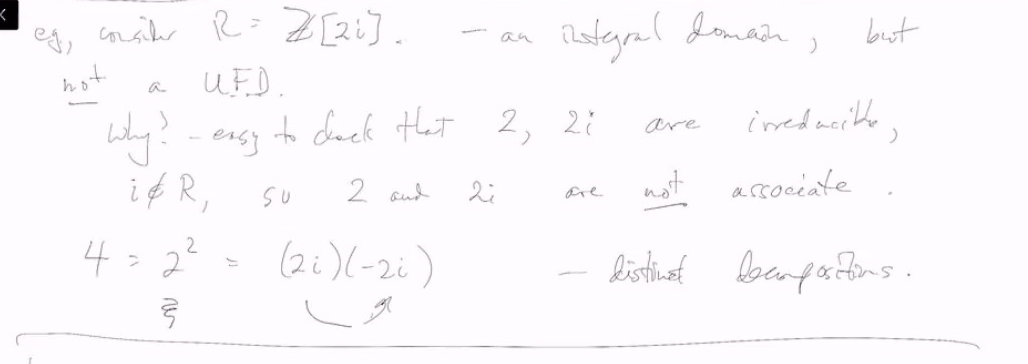 eg, consider R = ℤ[2i]. – an integral domain, but
not a UFD.
Why? – easy to check that 2, 2i are irreducible,
i ∉ R, so 2 and 2i are not associate.
4 = 2² = (2i)(-2i) – distinct decompositions.